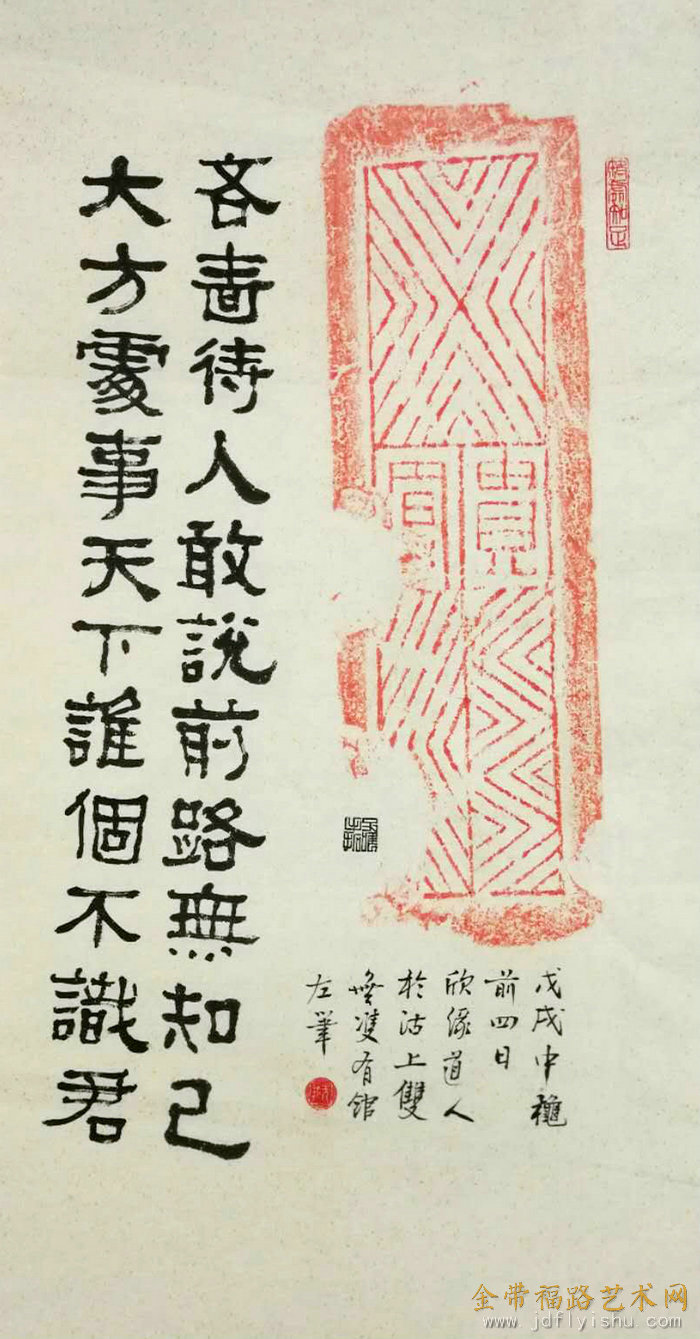 吝嗇待人敢說前路無知己
大方處事天下誰個不識君
戊戌中龝
前四日
欣緣道人
於沽上雙
無隻有館
左筆
金带福路艺术网
www.jdflyishu.com